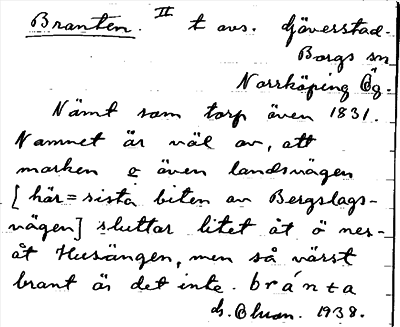 Branten. II t avs. Gäverstad-
Borgs sn
Norrköping Ög.
Nämt som torp även 1831.
Namnet är väl av, att
marken o även landsvägen
[här = sista biten av Bergslags-
vägen] sluttar litet åt ö ner-
åt Husängen, men så värst
brant är det inte. bránta
1938.